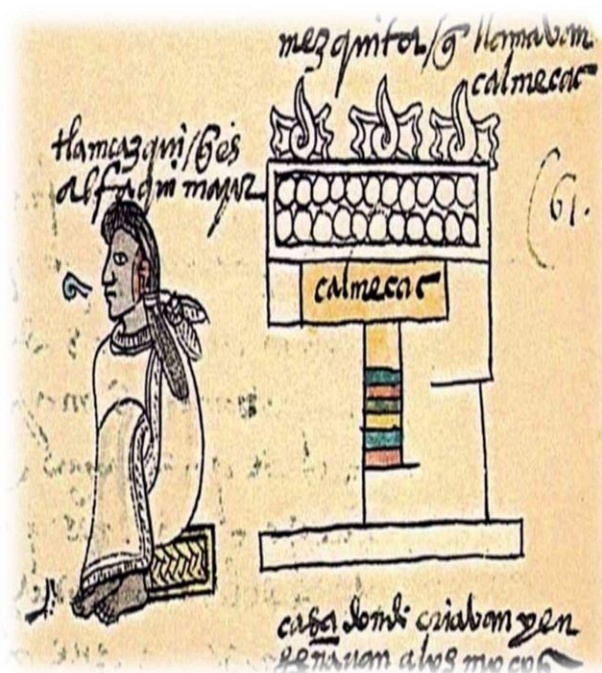 mezquita / q̃ llamaban
calmecac
tlamcazqui / q̃ es
alfaqui mayor
61.
calmecac
casa donde criaban y en
señavan a los moços